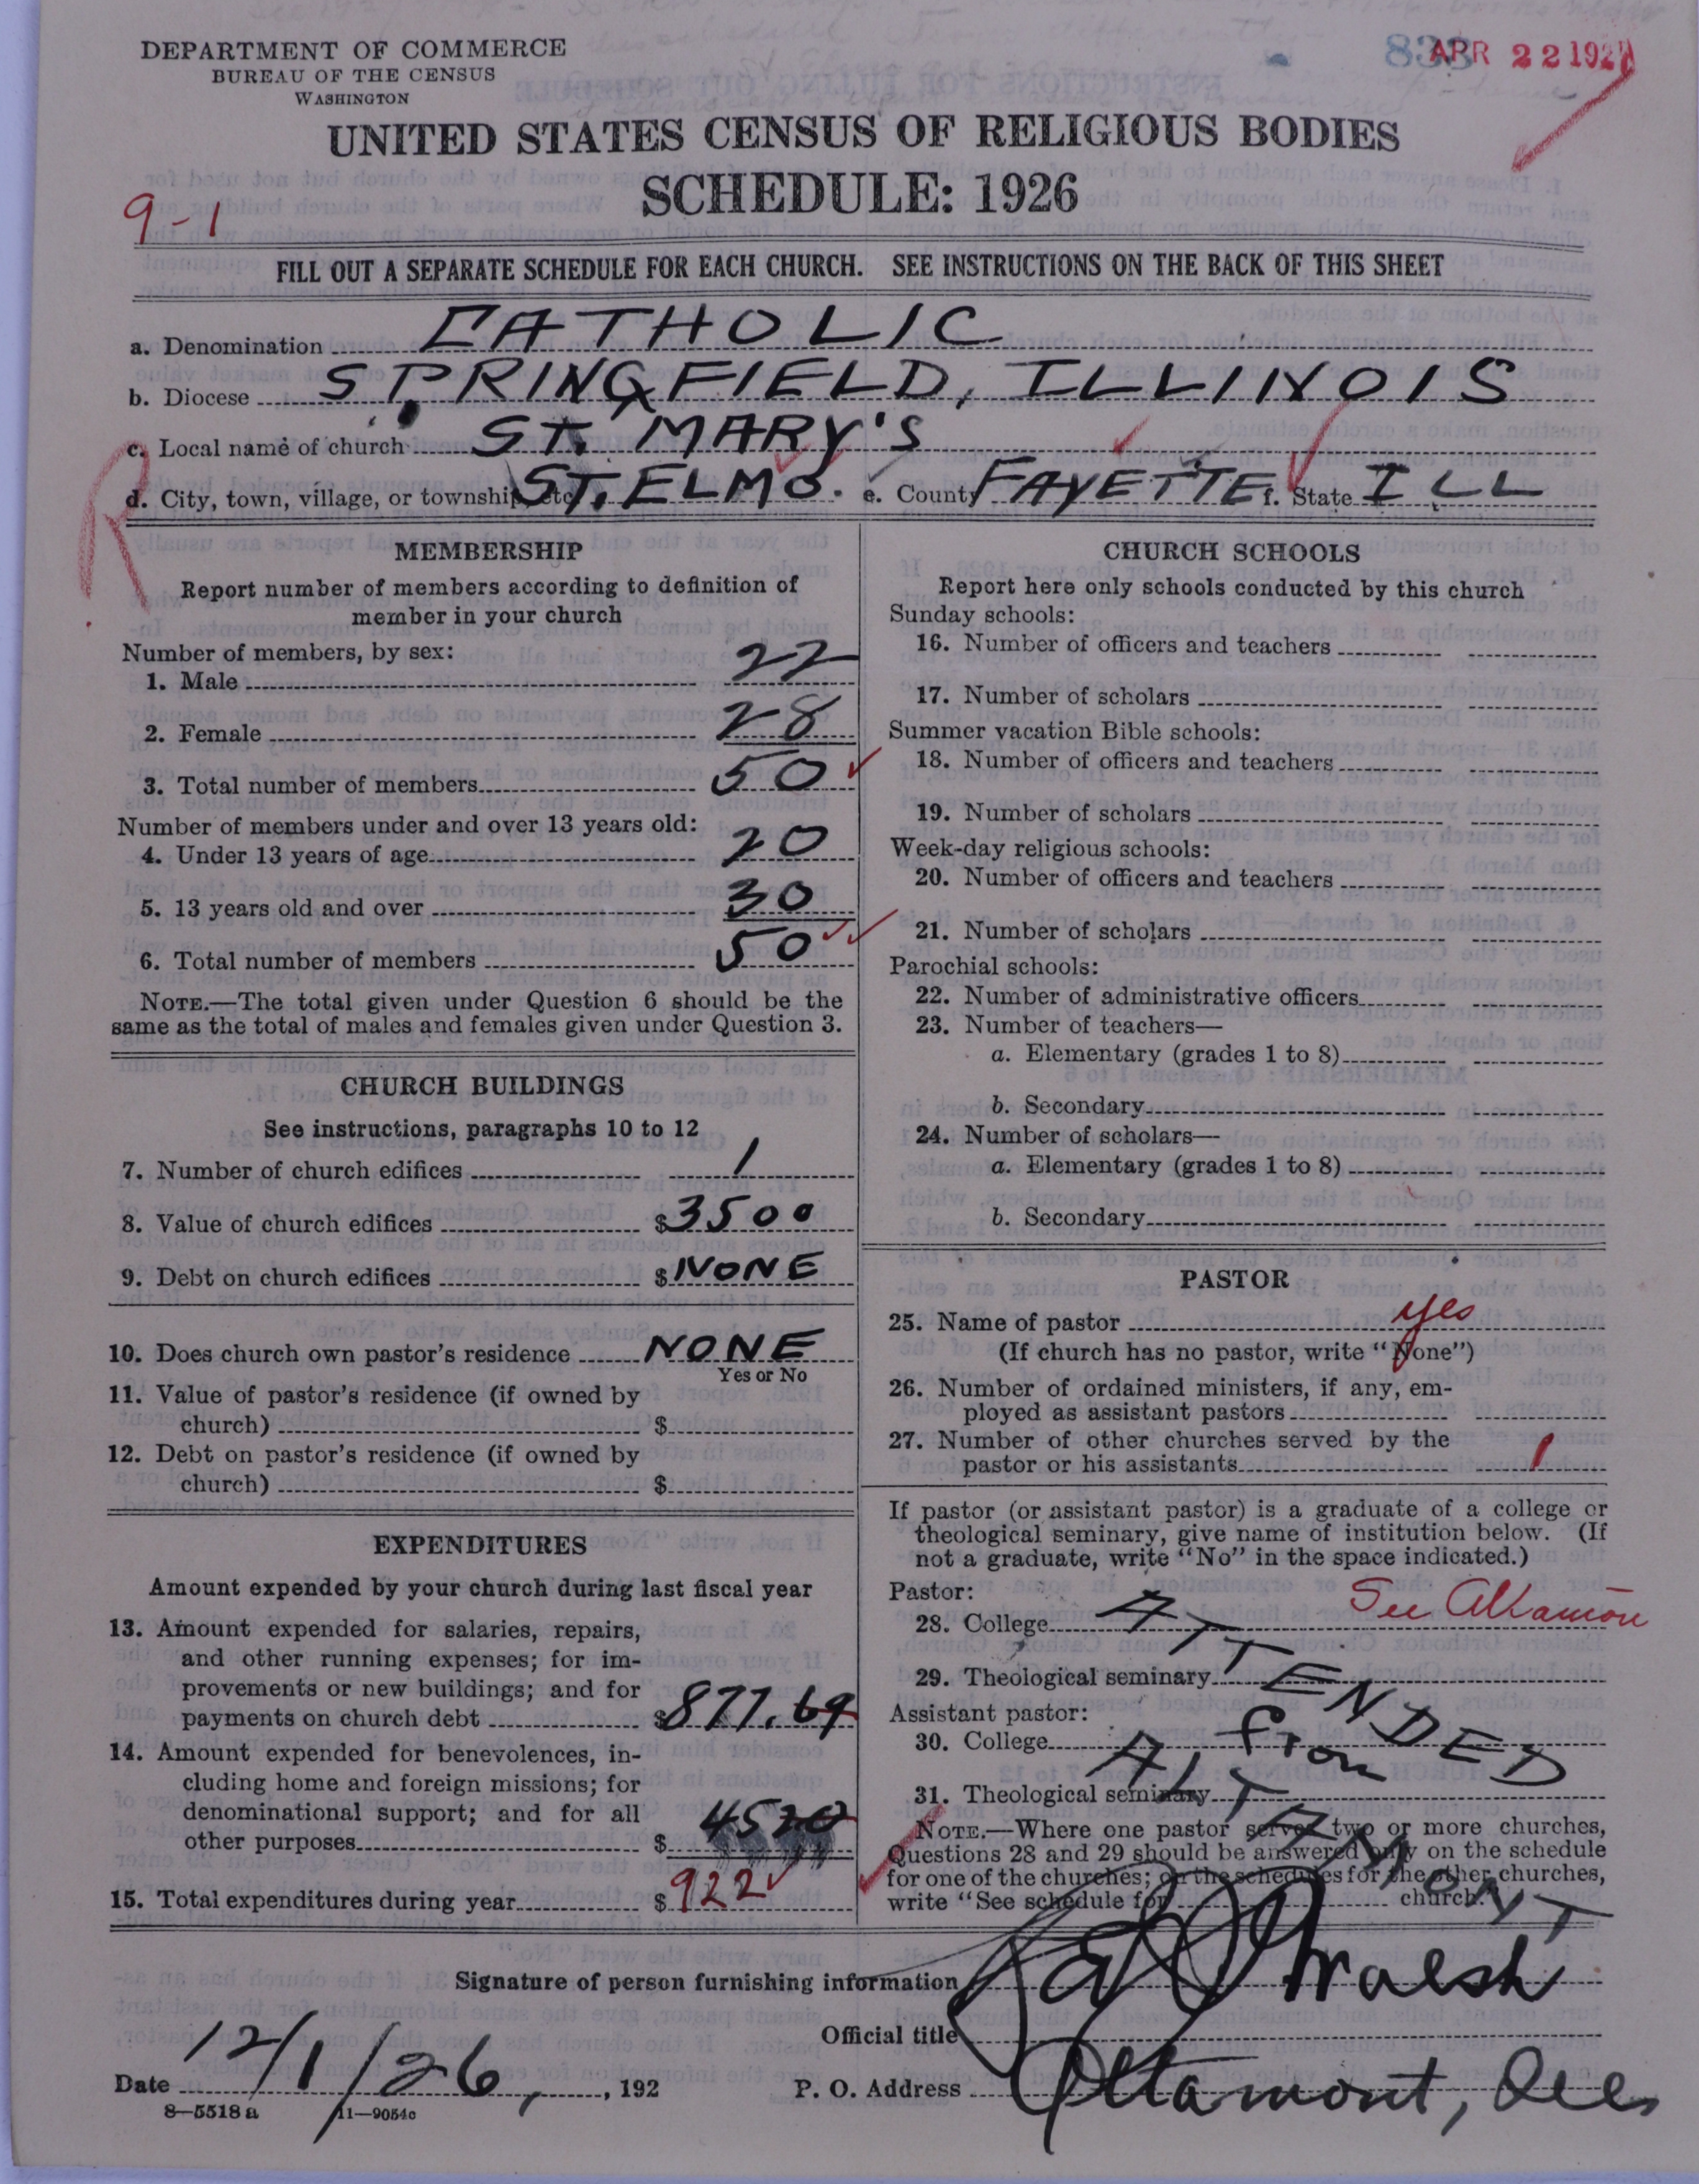 DEPARTMENT OF COMMERCE
BUREAU OF THE CENSUS
WASHINGTON
833
APR 22 1927
UNITED STATES CENSUS OF RELIGIOUS BODIES
SCHEDULE: 1926
9-1
FILL OUT A SEPARATE SCHEDULE FOR EACH CHURCH. SEE INSTRUCTIONS ON THE BACK OF THIS SHEET
a. Denomination CATHOLIC
b. Diocese SPRINGFIELD, ILLINOIS
c. Local name of church ST. MARY'S
d. City, town, village, or township, etc. ST. ELMO. e. County FAYETTE f. State ILL
R
MEMBERSHIP
Report number of members according to definition of
member in your church
Number of members, by sex:
1. Male 22
2. Female 28
3. Total number of members 50
Number of members under and over 13 years old:
4. Under 13 years of age 20
5. 13 years old and over 30
6. Total number of members 50
NOTE.—The total given under Question 6 should be the
same as the total of males and females given under Question 3.
CHURCH BUILDINGS
See instructions, paragraphs 10 to 12
7. Number of church edifices 1
8. Value of church edifices $3500
9. Debt on church edifices $NONE
10. Does church own pastor's residence NONE
Yes or No
11. Value of pastor's residence (if owned by
church) $
12. Debt on pastor's residence (if owned by
church) $
EXPENDITURES
Amount expended by your church during last fiscal year
13. Amount expended for salaries, repairs,
and other running expenses; for im-
provements or new buildings; and for
payments on church debt $877.69
14. Amount expended for benevolences, in-
cluding home and foreign missions; for
denominational support; and for all
other purposes $ 4520
15. Total expenditures during year $922
CHURCH SCHOOLS
Report here only schools conducted by this church
Sunday schools:
16. Number of officers and teachers
17. Number of scholars
Summer vacation Bible schools:
18. Number of officers and teachers
19. Number of scholars
Week-day religious schools:
20. Number of officers and teachers
21. Number of scholars
Parochial schools:
22. Number of administrative officers
23. Number of teachers—
a. Elementary (grades 1 to 8)
b. Secondary
24. Number of scholars—
a. Elementary (grades 1 to 8)
b. Secondary
PASTOR
25. Name of pastor yes
(If church has no pastor, write "None")
26. Number of ordained ministers, if any, em-
ployed as assistant pastors
27. Number of other churches served by the
pastor or his assistants 1
If pastor (or assistant pastor) is a graduate of a college or
theological seminary, give name of institution below. (If
not a graduate, write "No" in the space indicated.)
Pastor:
See Altamont
28. College
ATTENDED
29. Theological seminary
Assistant pastor:
from
30. College
ALTAMONT
31. Theological seminary
NOTE.—Where one pastor serves two or more churches,
Questions 28 and 29 should be answered only on the schedule
for one of the churches; on the schedules for the other churches,
write "See schedule for church."
Signature of person furnishing information Walsh
Official title
Date 12/1/26, , 192
P. O. Address Altamont, Ills
8—5518 a 11—9054c